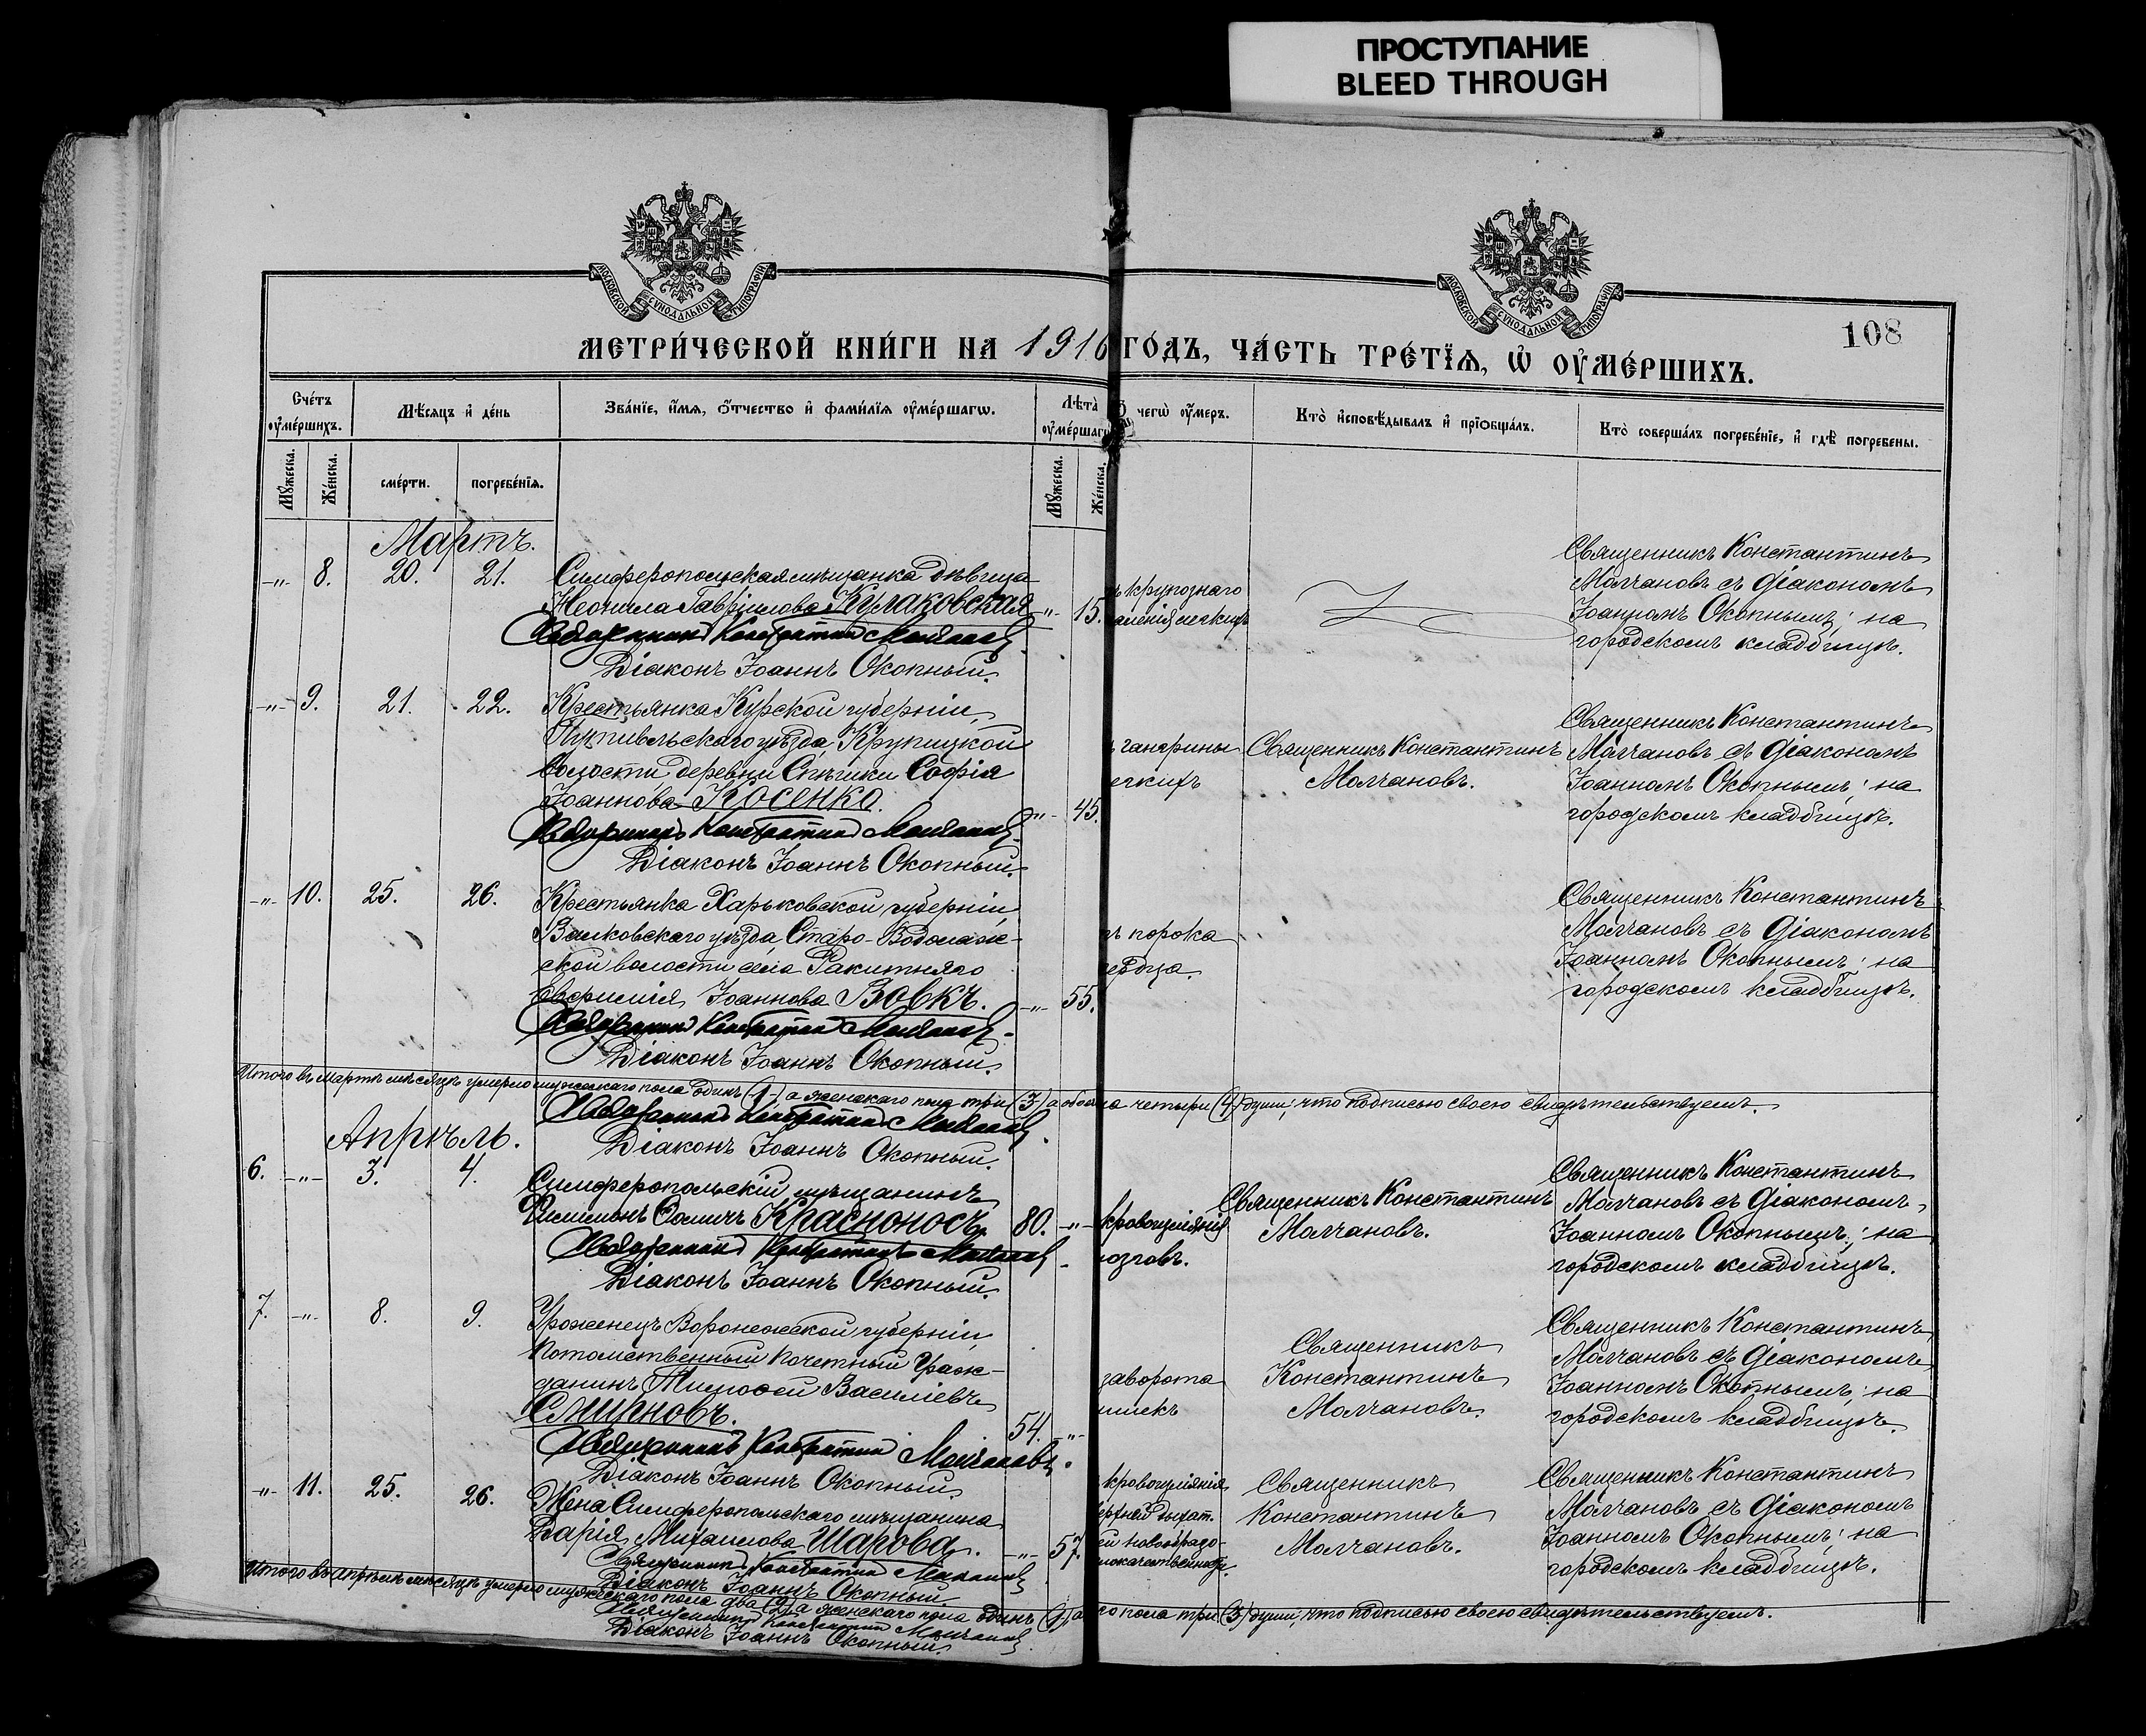 ПРОСТУПАНИЕ
BLEED THROUGH
МОСКОВСКОЙ СѴНОДАЛЬНОЙ ТИПОГРАФІИ
МОСКОВСКОЙ СѴНОДАЛЬНОЙ ТИПОГРАФІИ
108
МЕТРИ́ЧЕСКОЙ КНИ́ГИ НА 1916 ГО́ДЪ, ЧА́СТЬ ТРЕ́ТЇѦ, Ѡ҆ ОУ҆МЕ́РШИХЪ.
Сче́тъ оу҆ме́ршихъ.
Мѣ́сѧцъ и҆ де́нь
Зва́нїе, и҆́мѧ, ѻ҆́тчество и҆ фами́лїѧ оу҆ме́ршагѡ.
Лѣ́та оу҆ме́ршагѡ
чегѡ̀ оу҆́меръ.
Кто̀ и҆сповѣ́дывалъ и҆ прїѻбща́лъ.
Кто̀ соверша́лъ погребе́нїе, и҆ гдѣ̀ погребены.
Мꙋ́жеска.
Же́нска.
сме́рти.
погребе́нїѧ.
Мꙋ́жеска.
Же́нска.
Мартъ.
-„- 8. 20. 21. Симферопольская мѣщанка дѣвица
Неонила Гавріилова Кулаковская -„- 15.
Священникъ Константинъ Молчановъ
Діаконъ Іоаннъ Окопный.
крупознаго
аленія легкихъ
Священникъ Константинъ
Молчановъ съ діакономъ
Іоанномъ Окопнымъ; на
городскомъ кладбищѣ.
-„- 9. 21. 22. Крестьянка Курской губерніи,
Путивльскаго уѣзда, Крупицкой
волости деревни Спѣшки Софія
Іоаннова Косенко. -„- 45.
Священникъ Константинъ Молчановъ
Діаконъ Іоаннъ Окопный.
гангрины
егкихъ
Священникъ Константинъ
Молчановъ.
Священникъ Константинъ
Молчановъ съ діакономъ
Іоанномъ Окопнымъ; на
городскомъ кладбищѣ.
-„- 10. 25. 26. Крестьянка Харьковской губерніи
Валковскаго уѣзда, Старо-Водолаж-
ской волости села Ракитнаго
Евфимія Іоаннова Вовкъ. -„- 55.
Священникъ Константинъ Молчановъ
Діаконъ Іоаннъ Окопный.
порока
ердца.
Священникъ Константинъ
Молчановъ съ діакономъ
Іоанномъ Окопнымъ; на
городскомъ кладбищѣ.
Итого въ Мартѣ мѣсяцѣ умерло мужескаго пола одинъ (1) а женскаго пола три (3) а обоего четыри (4) души; что подписью своею свидѣтельствуемъ.
Священникъ Константинъ Молчановъ
Діаконъ Іоаннъ Окопный.
Апрѣль.
6. -„- 3. 4. Симферопольскій мѣщанинъ
Филимонъ Ѳомичъ Красноносъ. 80. -„-
Священникъ Константинъ Молчановъ
Діаконъ Іоаннъ Окопный.
кровоизліянія
мозговъ.
Священникъ Константинъ
Молчановъ.
Священникъ Константинъ
Молчановъ съ діакономъ
Іоанномъ Окопнымъ; на
городскомъ кладбищѣ.
7. -„- 8. 9. Уроженецъ Воронежской губерніи,
потомственный почетный граж-
данинъ Тимоѳей Василіевъ
Смирновъ. 54. -„-
Священникъ Константинъ Молчановъ.
Діаконъ Іоаннъ Окопный.
заворота
кишекъ
Священникъ
Константинъ
Молчановъ.
Священникъ Константинъ
Молчановъ съ діакономъ
Іоанномъ Окопнымъ; на
городскомъ кладбищѣ.
-„- 11. 25. 26. Жена Симферопольскаго мѣщанина
Дарія Михаилова Шарова. -„- 57.
Священникъ Константинъ Молчановъ
Діаконъ Іоаннъ Окопный.
кровоизліянія
новообразо-
Священникъ
Константинъ
Молчановъ.
Священникъ Константинъ
Молчановъ съ діакономъ
Іоанномъ Окопнымъ; на
городскомъ кладбищѣ.
Итого въ Апрѣлѣ мѣсяцѣ умерло мужескаго пола два (2) а женскаго пола одинъ (1), а го пола три (3) души; что подписью своею свидѣтельствуемъ.
Священникъ Константинъ Молчановъ
Діаконъ Іоаннъ Окопный.